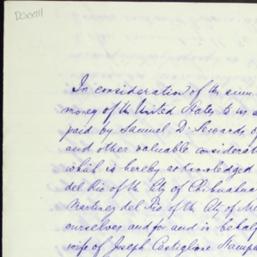 In consideration of the sum
money of the United States to us
paid by Samuel D. Sewards of
and other valuable considerat
which is hereby acknowledged
del Rio of the City of Chihuahua
Martinez del Rio of the City of Me
ourselves and for and in behalf
wife of Joseph Castiglione